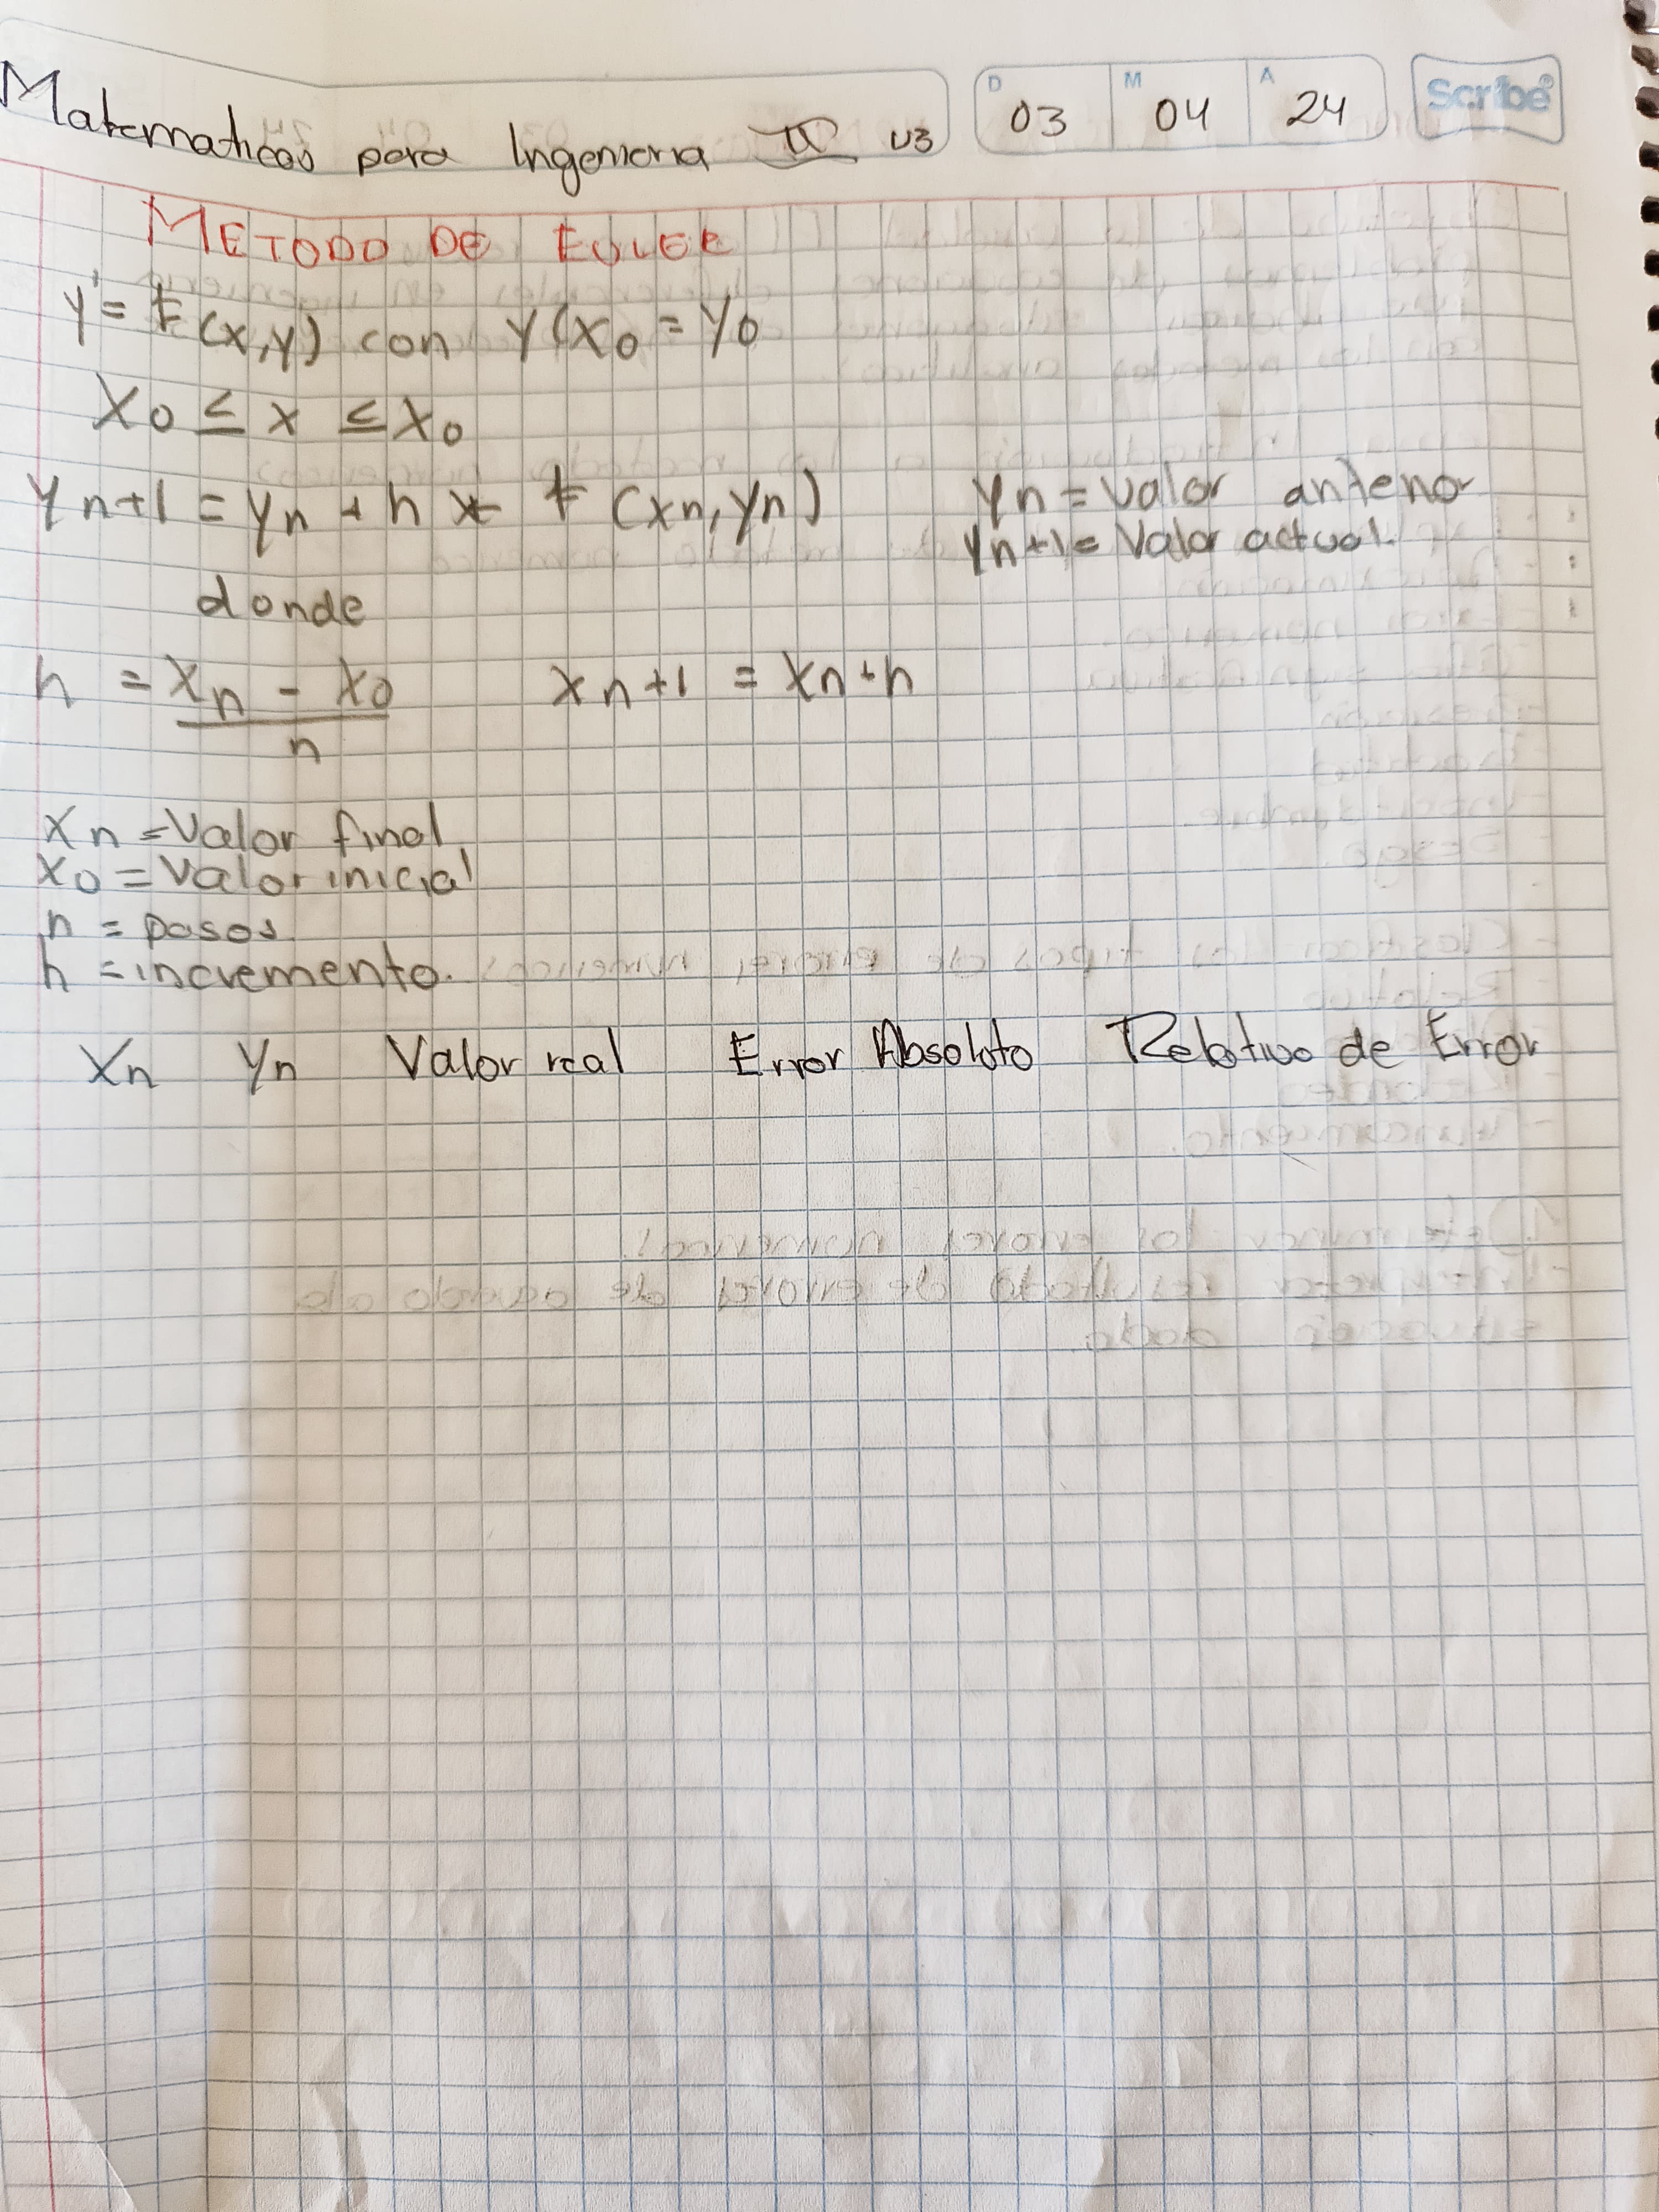 Matematicas para Ingenieria II U3
D 03 M 04 A 24
Scribe®
METODO DE EULER
y' = f(x,y) con y(x0 = y0
x0 ≤ x ≤ x0
yn+1 = yn + h * f (xn, yn)
yn = Valor anterior
yn+1 = Valor actual.
donde
h = xn - x0 / n
xn+1 = xn + h
xn = Valor final
x0 = Valor inicial
n = pasos
h = incremento.
Xn Yn Valor real Error Absoluto Relativo de Error